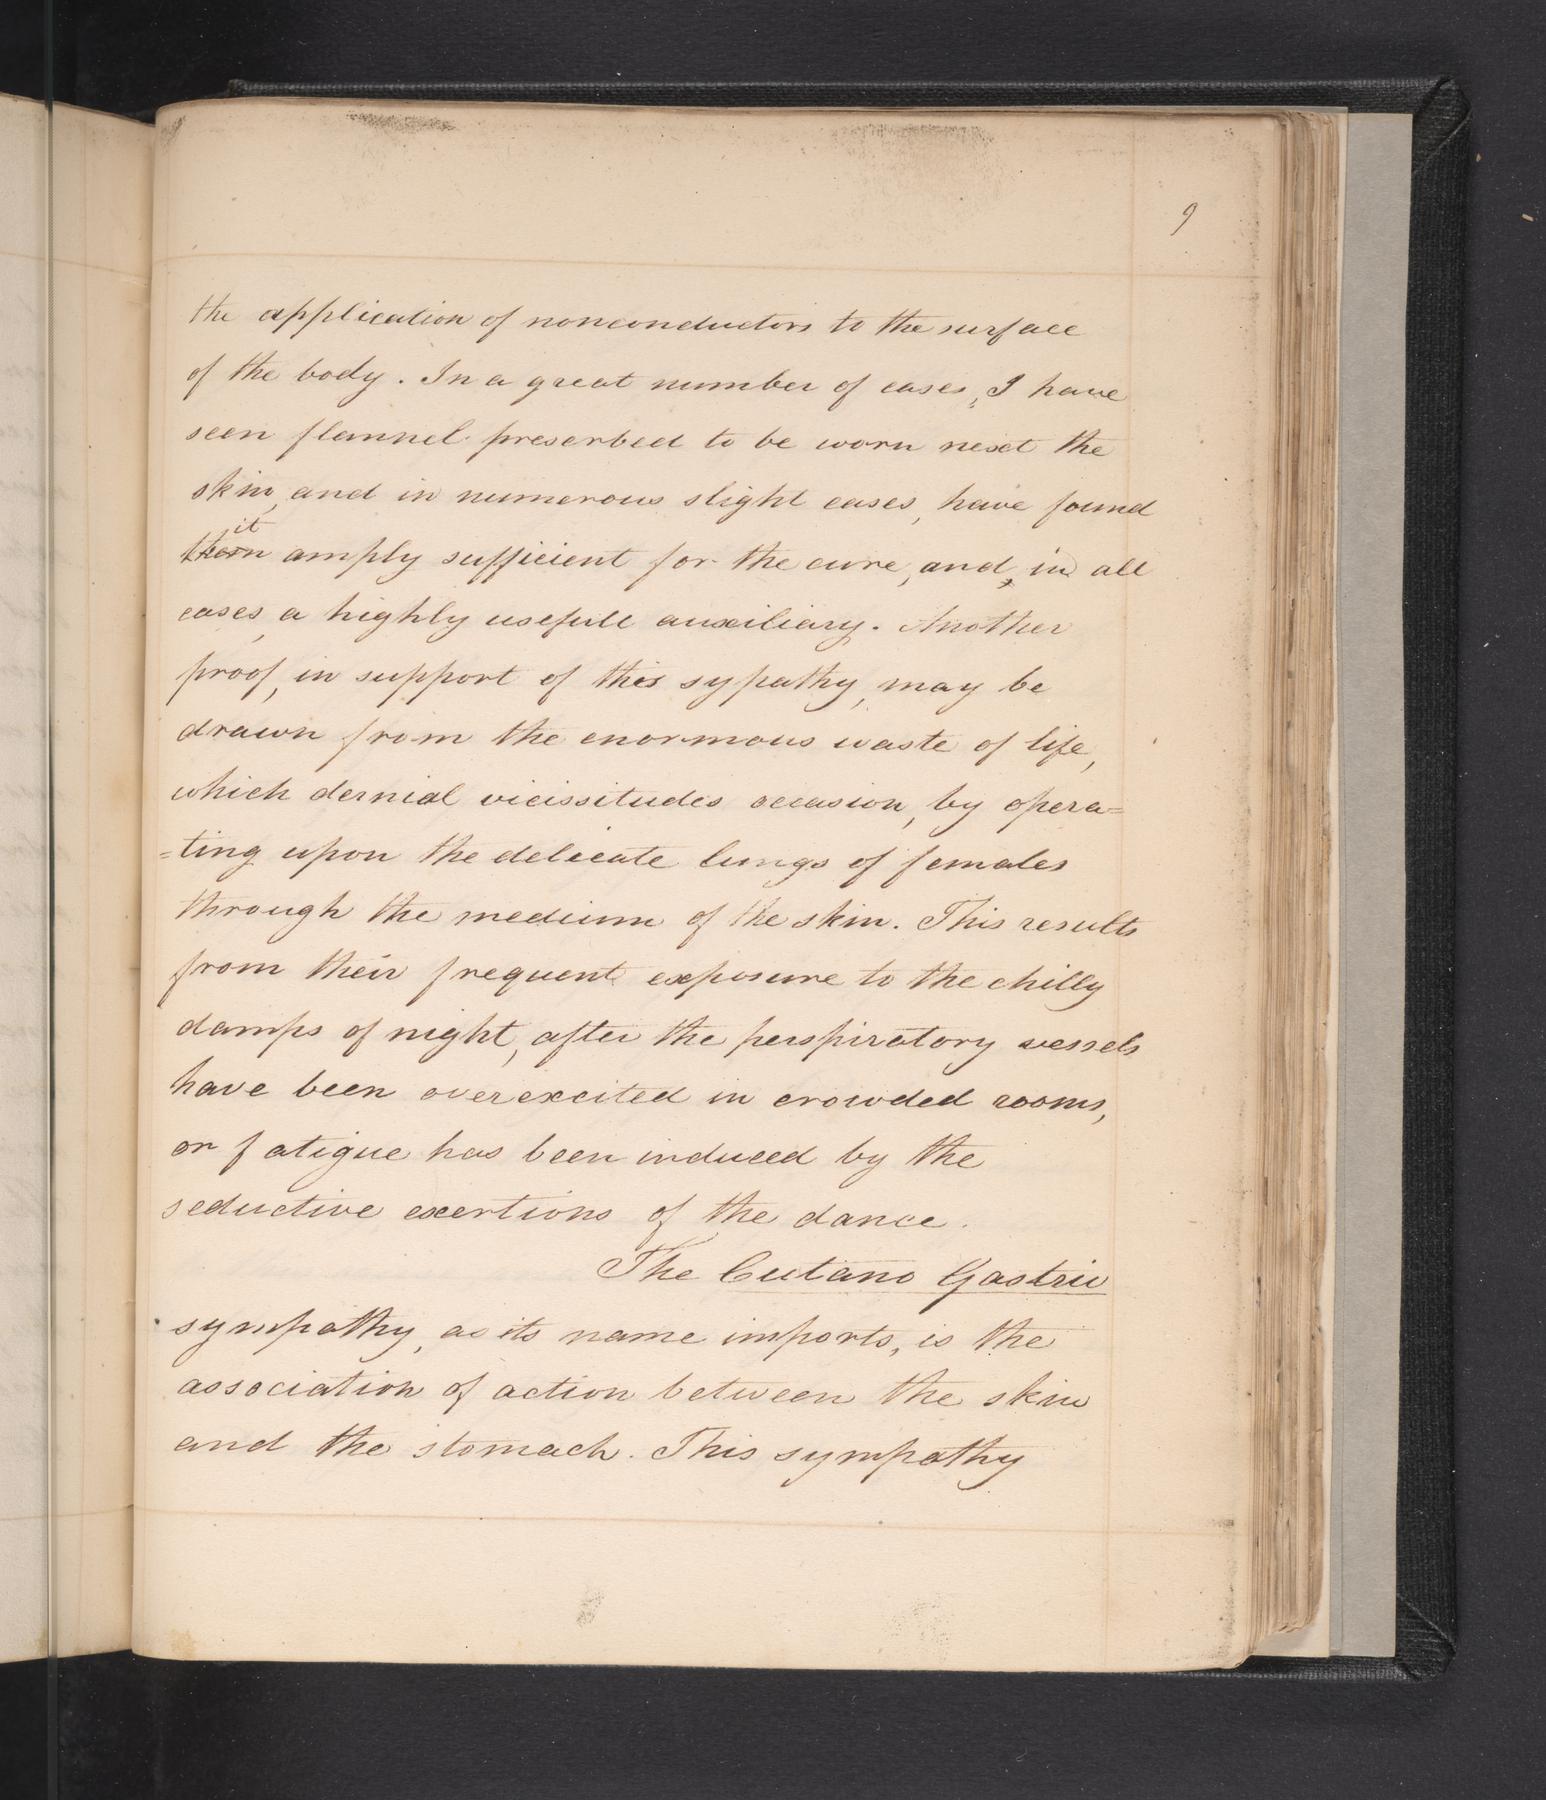 9
the application of nonconductors to the surface
of the body. In a great number of cases, I have
seen flannel prescrbed to be worn next the
skin, and in numerous slight cases, have found
it
them amply sufficient for the cure, and, in all
cases, a highly usefull auxiliary. Another
proof, in support of this sypathy, may be
drawn from the enormous waste of life,
which dernial vicissitudes occasion, by opera=
=ting upon the delicate lungs of females
through the medium of the skin. This results
from their frequent exposure to the chilly
damps of night, after the perspiratory vessels
have been overexcited in crowded rooms,
or fatigue has been induced by the
seductive exertions of the dance.
The Cutano Gastric
sympathy, as its name imports, is the
association of action between the skin
and the stomach. This sympathy